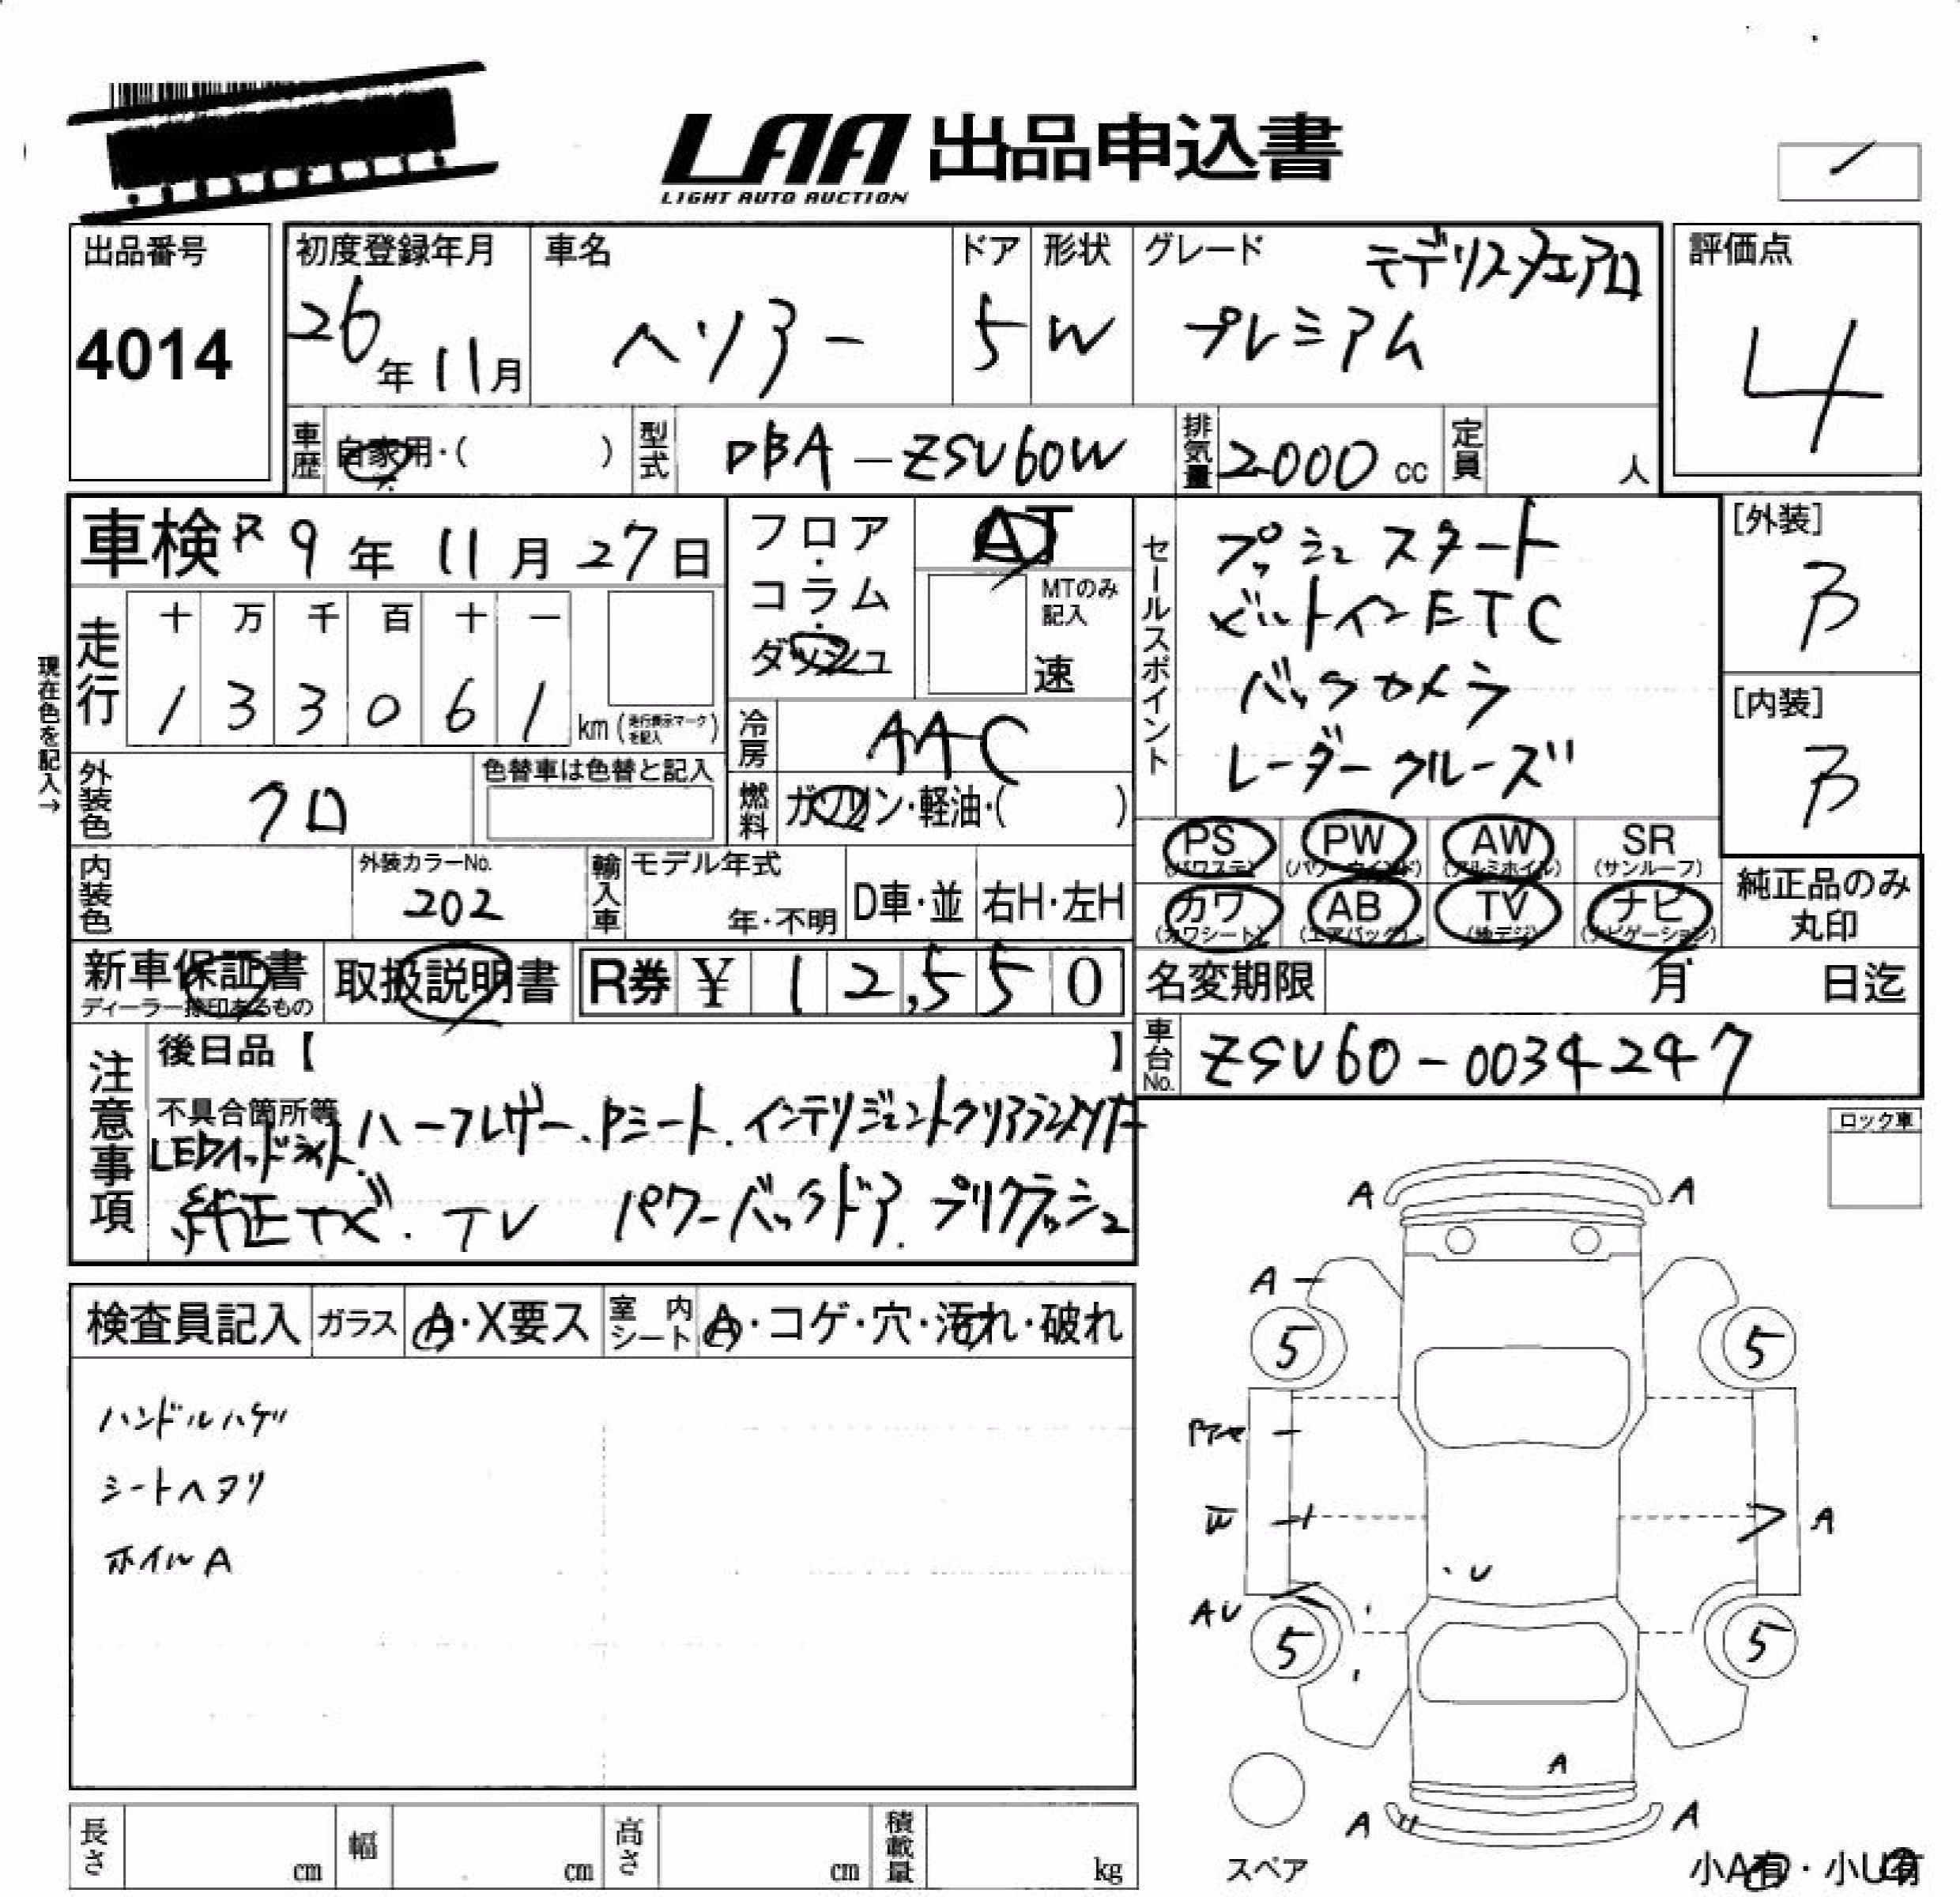 LAA 出品申込書
LIGHT AUTO AUCTION
出品番号
4014
初度登録年月
26年11月
車名
ハリアー
ドア
5
形状
W
グレード
プレミアム
評価点
4
車歴
自家用・( )
型式
DBA-ZSU60W
排気量
2000 cc
定員
人
車検 R9年11月27日
フロア・コラム・ダッシュ
AT
MTのみ記入
速
セールスポイント
プッシュスタート
ビルトインETC
バックカメラ
レーダークルーズ
[外装]
B
[内装]
B
現在色を記入→
走行
十 万 千 百 十 一
1 3 3 0 6 1
km (走行表示マークを記入)
冷房
AAC
外装色
クロ
色替車は色替と記入
燃料
ガソリン・軽油・( )
PS
(パワステ)
PW
(パワーウインド)
AW
(アルミホイル)
SR
(サンルーフ)
カワ
(カワシート)
AB
(エアバッグ)
TV
(地デジ)
ナビ
(ナビゲーション)
純正品のみ
丸印
内装色
外装カラーNo.
202
輸入車
モデル年式
年・不明
D車・並
右H・左H
新車保証書
ディーラー捺印あるもの
取扱説明書
R券 ¥ 12,550
名変期限
月 日迄
車台No.
ZSU60-0034247
注意事項
後日品【 】
不具合箇所等
ハーフレザー、Pシート、インテリジェントクリアランスソナー
LEDヘッドライト
純正 TV パワーバックドア プリクラッシュ
ロック車
検査員記入
ガラス
A・X要ス
室内シート
A・コゲ・穴・汚れ・破れ
ハンドルハゲ
シートヘタリ
ホイルA
A A
A
5 5
W A
U
AU
5 5
A
A A
スペア
小A有・小U有
長さ cm
幅 cm
高さ cm
積載量 kg